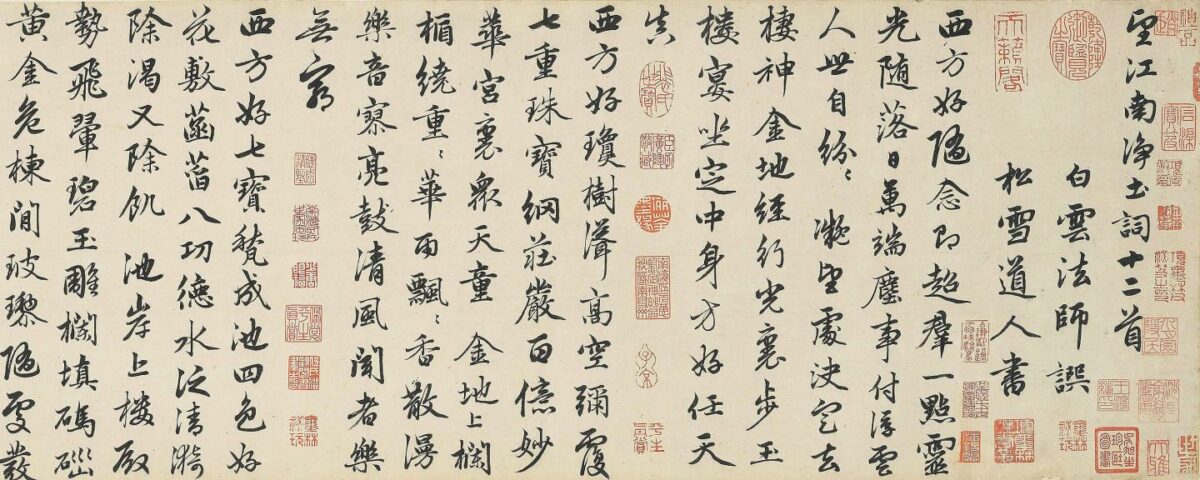 望江南淨土詞十二首
白雲法師譔
松雪道人書
西方好隨念即超羣一點靈
光随落日萬端塵事付浮雲
人世自紛〻凝望處決定去
棲神金地經行光裏步玉
樓宴坐定中身方好任天
真
西方好瓊樹聳高空彌覆
七重珠寶網莊嚴百億妙
華宮裏眾天童金地上欄
楯繞重〻華雨飄〻香散漫
樂音寥亮鼓清風聞者樂
無窮
西方好七寶甃成池四色好
花敷菡萏八功德水泛清漪
除渴又除飢池岸上樓殿
勢飛翬碧玉雕欄填碼碯
黃金危棟間玻瓈隨處發
天籟閣
子京